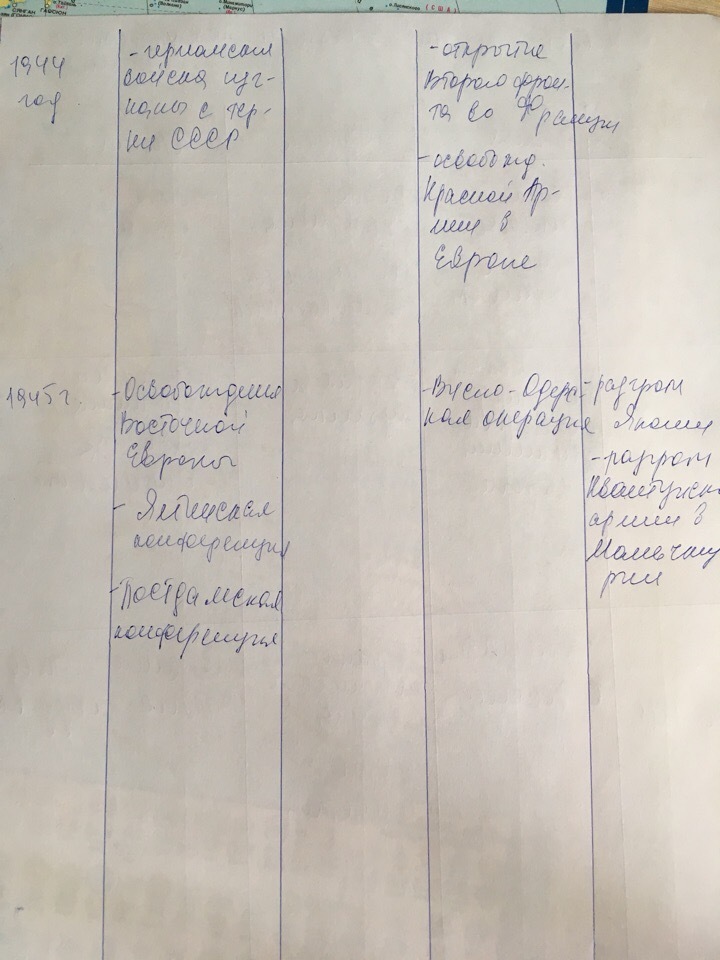 1944
год
- германские
войска изг-
наны с тер-
ии СССР
- открытие
Второго фрон-
та во Франции
- освобожд.
Красной Ар-
мии в
Европе
1945 г.
- Освобождения
Восточной
Европы
- Ялтинская
конференция
- Постдамская
конференция
- Висло-Одерс-
кая операция
- разгром
Японии
- разгром
Квантунск
армии в
Маньчжу
рии